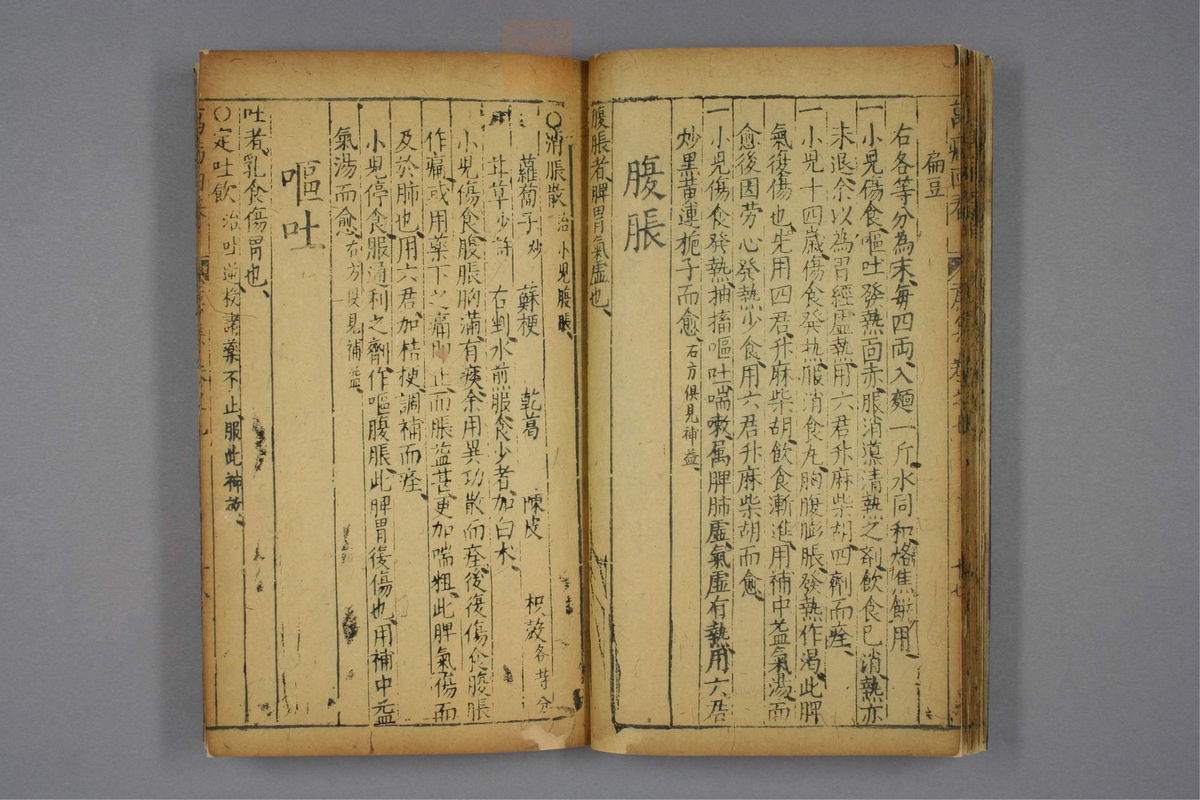 扁豆
右各等分為末、每四両、入麵一斤、水同和、烙焦餅用、
一小児傷食、嘔吐發熱面赤、服消導清熱之剤、飲食已消、熱亦
未退、余以為胃經虚熱、用六君升麻柴胡、四剤而痊、
一小児十四歳、傷食發熱、服消食丸、胸腹膨脹、發熱作渇、此脾
氣復傷也、先用四君、升麻柴胡、飲食漸進、用補中益氣湯而
愈、後因労心發熱少食、用六君升麻柴胡而愈、
一小児傷食發熱、抽搐嘔吐、喘嗽、属脾肺虚、氣虚有熱、用六君
炒黒黄連梔子而愈、右方俱見補益、
腹脹
腹脹者、脾胃氣虚也、
○消脹散 治小児腹脹、
蘿蔔子炒 蘇梗 乾葛 陳皮 枳殼各等分
甘草少許 右剉、水煎服、食少者、加白朮、
小児傷食、腹脹胸滿、有痰、余用異功散而痊、後復傷食、腹脹
作痛、或用藥下之、痛即止、而脹益甚、更加喘粗、此脾氣傷而
及於肺也、用六君加桔梗、調補而痊、
小児停食、服通利之劑、作嘔腹脹、此脾胃復傷也、用補中益
氣湯而愈、右方俱見補益、
嘔吐
吐者、乳食傷胃也、
○定吐飲 治吐逆、投諸藥不止、服此神効、